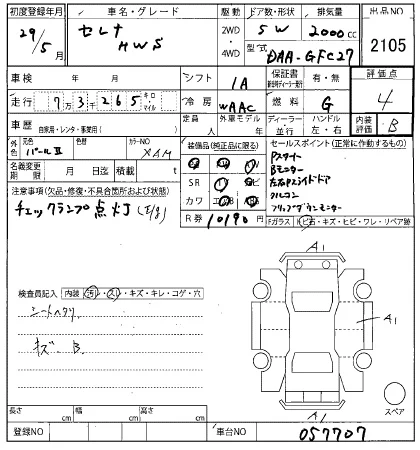 初度登録年月 車名・グレード 駆動 ドア数・形状 排気量 出品NO
29/5月 セレナ HWS 2WD・4WD 5W 2000cc 2105
型式 DAA-GFC27
車検 年 月 シフト IA 保証書 有・無 評価点
走行 7万3千265 キロ・マイル 冷房 WAAC 燃料 G 4
車歴 自家用・レンタ・事業用( ) 定員 外車モデル 年 ディーラー・並行 ハンドル 左・右 内装評価 B
外色 元色 パールⅡ 色替 カラーNO XAM 装備品(純正品に限る) セールスポイント(正常に作動するもの)
名義変更期限 月 日迄 積載 t SR
Pスタート
Bモニター
注意事項(欠品・修復・不具合箇所および状態) カワ
左右Pスライドドア
クルコン
チェックランプ点灯(E/g) R券 10190 円
フリップダウンモニター
Fガラス トビ石・キズ・ヒビ・ワレ・リペア跡
A1
検査員記入 内装 汚れ・スレ・キズ・キレ・コゲ・穴
シートヘタリ
A1
キズ、B
スペア
長さ cm 幅 cm 高さ cm
A1
登録NO 車台NO 057707